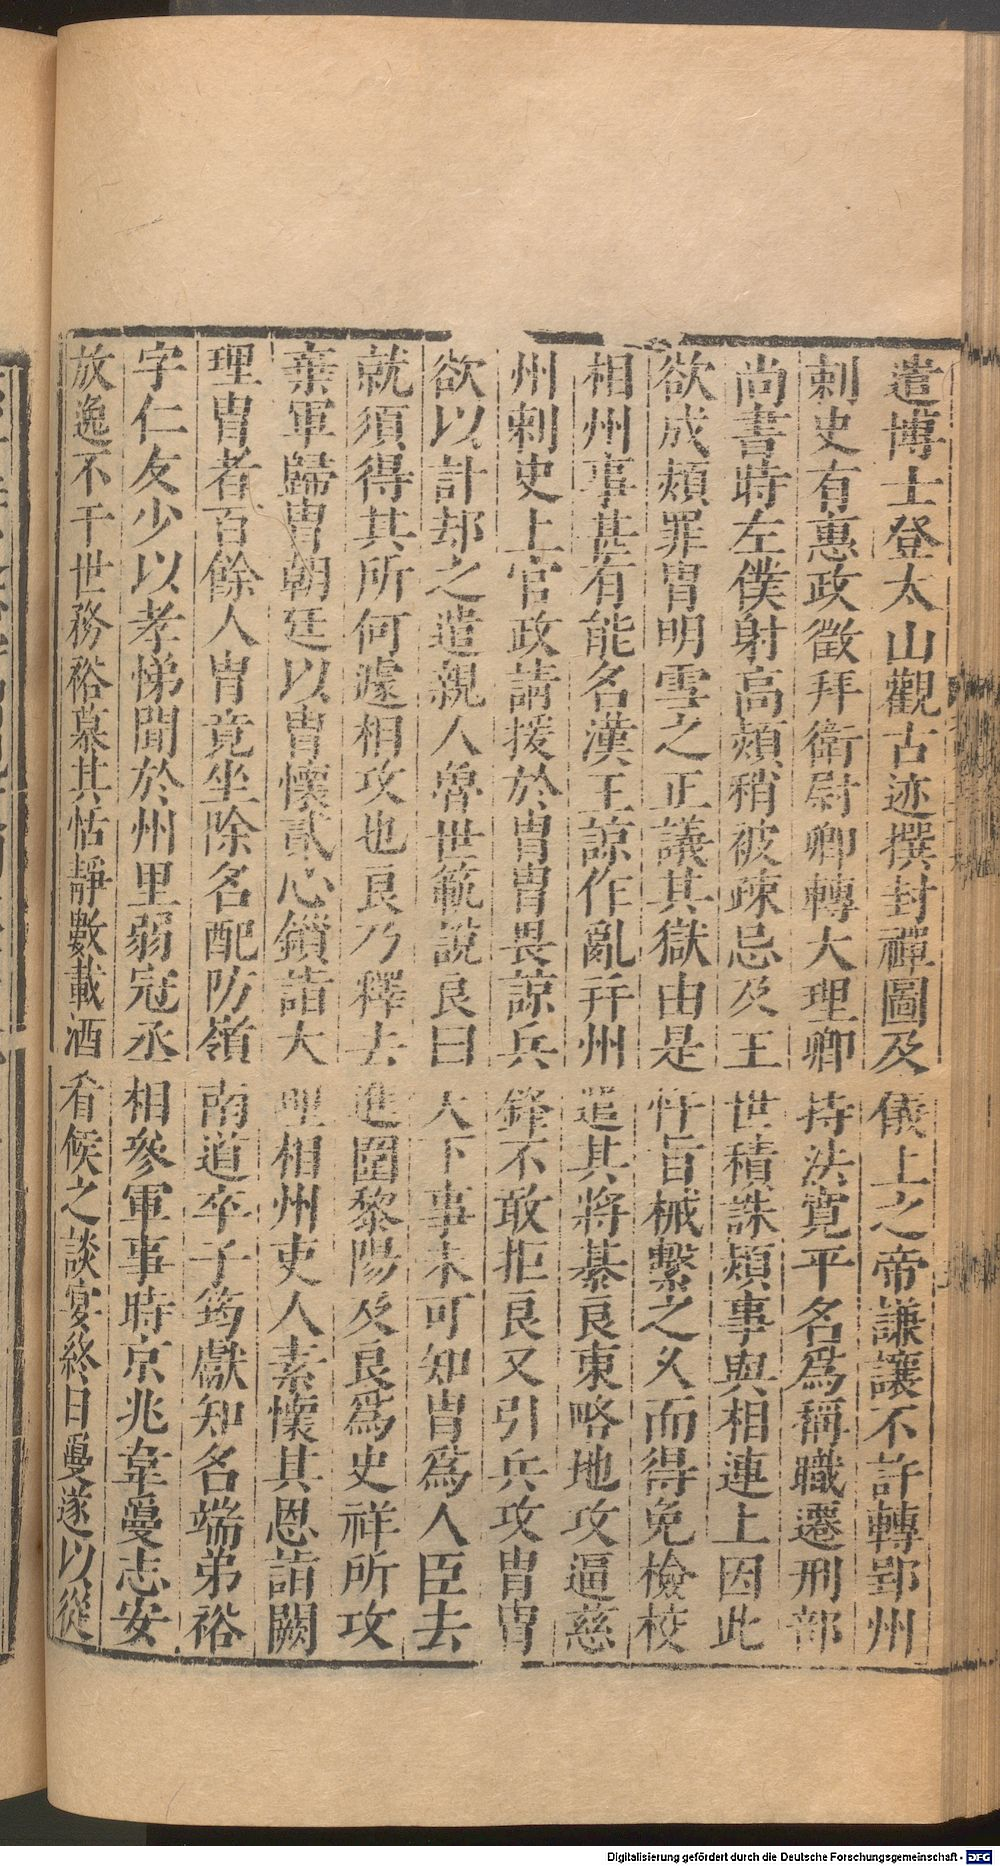 遣博士登太山觀古迹撰封禪圖及儀上之帝謙讓不許轉郢州
刺史有惠政徵拜衛尉卿轉大理卿持法寬平名爲稱職遷刑部
尚書時左僕射高熲稍被疎忌及王世積誅熲事與相連上因此
欲成熲罪冑明雪之正議其獄由是忤旨械繫之久而得免檢校
相州事甚有能名漢王諒作亂幷州遣其將綦良東略地攻逼慈
州刺史上官政請援於冑冑畏諒兵鋒不敢拒良又引兵攻冑冑
欲以計却之遣親人魯世範說良曰天下事未可知冑爲人臣去
就須得其所何遽相攻也良乃釋去進圍黎陽及良爲史祥所攻
棄軍歸冑朝廷以冑懷貳心鎖詣大理相州吏人素懷其恩詣闕
理冑者百餘人冑竟坐除名配防嶺南道卒子筠獻知名端弟裕
字仁友少以孝悌聞於州里弱冠丞相參軍事時京兆韋敻志安
放逸不干世務裕慕其恬靜數載酒肴候之談宴終日敻遂以從
Digitalisierung gefördert durch die Deutsche Forschungsgemeinschaft - DFG